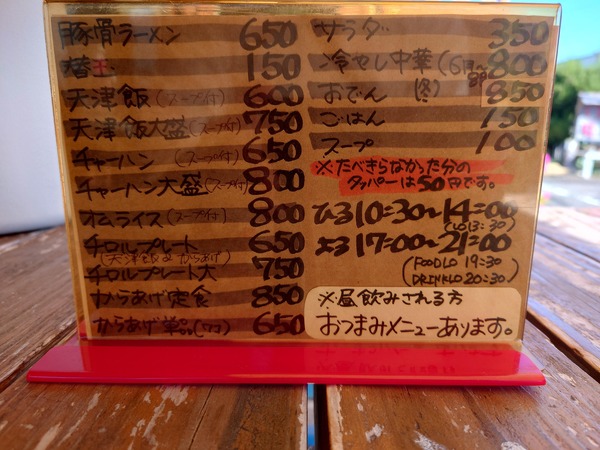 豚骨ラーメン 650
替玉 150
天津飯(スープ付) 600
天津飯大盛(スープ付) 750
チャーハン(スープ付) 650
チャーハン大盛(スープ付) 800
オムライス(スープ付) 800
チロルプレート 650
(天津飯&からあげ)
チロルプレート大 750
からあげ定食 850
からあげ単品(7コ) 650
サラダ 350
冷やし中華(6月〜8月) 800
おでん(冬) 850
ごはん 150
スープ 100
※たべきらなかった分の
タッパーは50円です。
ひる10:30〜14:00
(LO13:30)
よる17:00〜21:00
(FOOD LO 19:30
DRINK LO 20:30)
※昼飲みされる方
おつまみメニューあります。